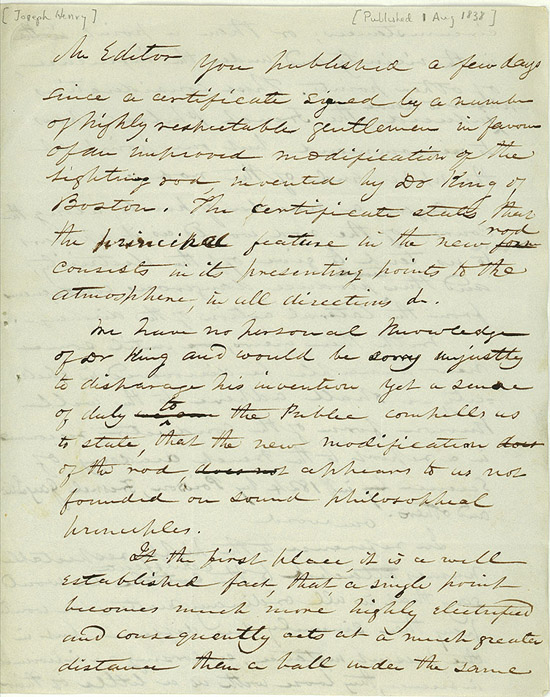 [ Joseph Henry ]
[ Published 1 Aug 1838 ]
Mr Editor You published a few days
since a certificate signed by a number
of highly respectable gentlemen in favour
of an improved modification of the
lighting rod, invented by Dr King of
Boston. The certificate stats, that
the principal feature in the new rod
consists in its presenting points to the
atmosphere, in all directions &.
We have no personal knowledge
of Dr King and would be sorry unjustly
to disparage his invention yet a sense
of duty to the Public compells us
to state, that the new modification does
of the rod does not appears to us not
founded on sound philosophical
principles.
If the first place, it is a well
established fact, that, a single point
becomes much more highly electrified
and consequently acts at a much greater
distance then a ball under the same